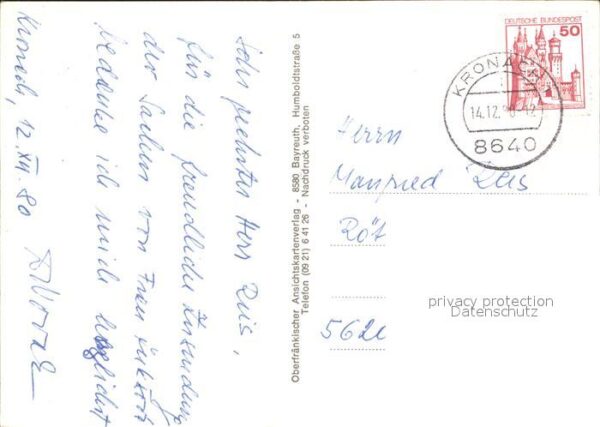 Sehr geehrter Herr Reis,
für die freundliche Zusendung
der Sachen von Frau
bedanke ich mich herzlichst
Kronach, 12. XII. 80
Oberfränkischer Ansichtskartenverlag - 8580 Bayreuth, Humboldtstraße 5
Telefon (09 21) 6 41 26 - Nachdruck verboten
DEUTSCHE BUNDESPOST
50
KRONACH
14.12.
8640
Herrn
Manfred Reis
Röt
562
privacy protection
Datenschutz